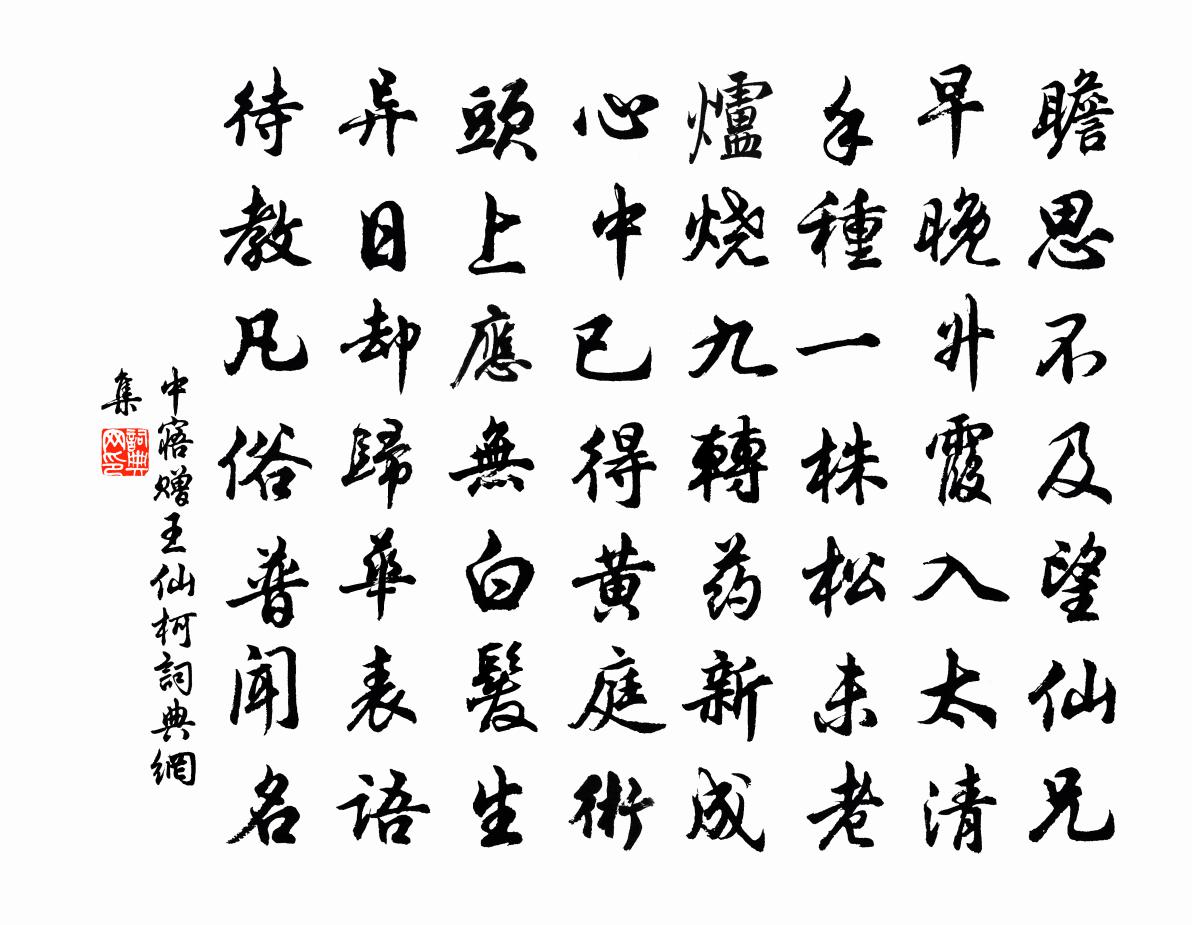 瞻思不及望仙兄
早晚升霞入太清
手種一株松未老
爐烧九轉药新成
心中已得黄庭術
頭上應無白髮生
异日却歸華表語
待教凡俗普聞名
中寤赠王仙柯詞典網
集
詞典
网印